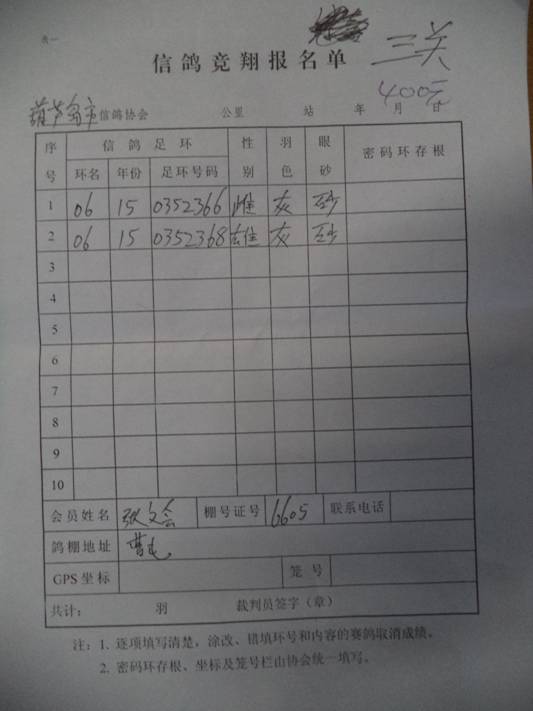 表一
信鸽竞翔报名单
三关
400元
葫芦岛市信鸽协会 公里 站 年 月 日
序号 信鸽足环 性别 羽色 眼砂 密码环存根
环名 年份 足环号码
1 06 15 0352366 雌 灰 砂
2 06 15 0352368 雄 灰 砂
3
4
5
6
7
8
9
10
会员姓名 张文会 棚号证号 6605 联系电话
鸽棚地址
GPS坐标 笼号
共计: 羽 裁判员签字(章)
注:1. 逐项填写清楚,涂改、错填环号和内容的赛鸽取消成绩。
2. 密码环存根、坐标及笼号栏由协会统一填写。